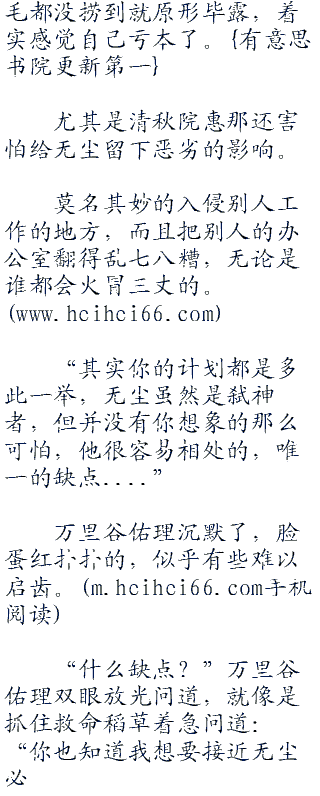 毛都没捞到就原形毕露，着
实感觉自己亏本了。{有意思
书院更新第一}
尤其是清秋院惠那还害
怕给无尘留下恶劣的影响。
莫名其妙的入侵别人工
作的地方，而且把别人的办
公室翻得乱七八糟，无论是
谁都会火冒三丈的。
(www.hcihci66.com)
“其实你的计划都是多
此一举，无尘虽然是弑神
者，但并没有你想象的那么
可怕，他很容易相处的，唯
一的缺点....”
万里谷佑理沉默了，脸
蛋红扑扑的，似乎有些难以
启齿。(m.hcihci66.com手机
阅读)
“什么缺点？”万里谷
佑理双眼放光问道，就像是
抓住救命稻草着急问道：
“你也知道我想要接近无尘
必